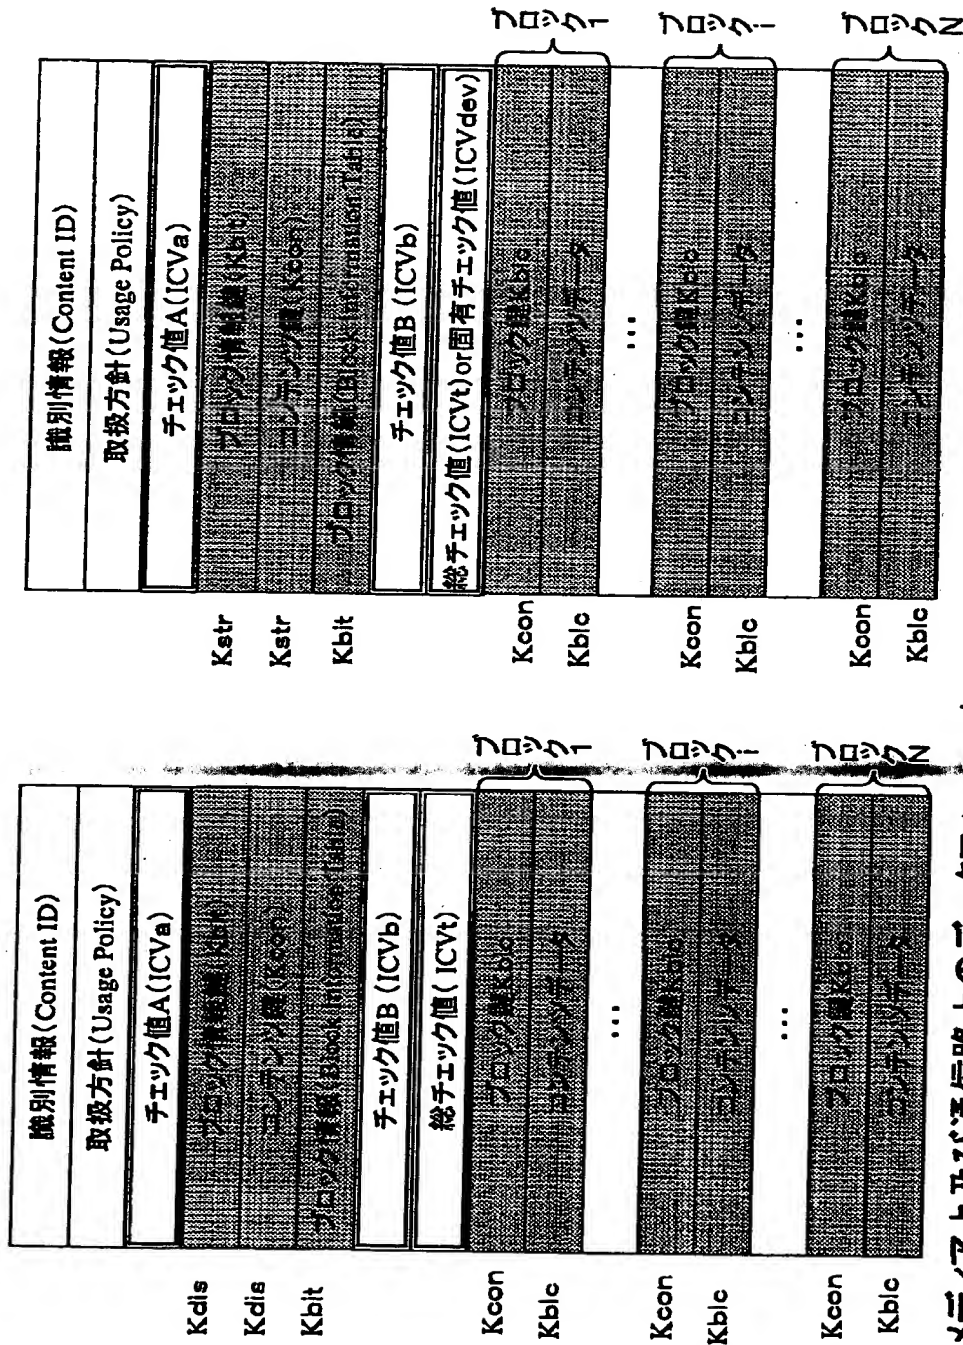 識別情報(Content ID)
取扱方針(Usage Policy)
チェック値A(ICVa)
Kdis
ブロック情報鍵(Kbit)
Kdis
コンテンツ鍵(Kcon)
Kbit
ブロック情報(Block Information Table)
チェック値B (ICVb)
総チェック値( ICVt)
Kcon
ブロック鍵Kblc
Kblc
コンテンツデータ
ブロック1
...
Kcon
ブロック鍵Kblc
Kblc
コンテンツデータ
ブロックi
...
Kcon
ブロック鍵Kblc
Kblc
コンテンツデータ
ブロックN
メディア上及び通信路上の
識別情報(Content ID)
取扱方針(Usage Policy)
チェック値A(ICVa)
Kstr
ブロック情報鍵(Kbit)
Kstr
コンテンツ鍵(Kcon)
Kbit
ブロック情報(Block Information Table)
チェック値B (ICVb)
総チェック値(ICVt)or固有チェック値(ICVdev)
Kcon
ブロック鍵Kblc
Kblc
コンテンツデータ
ブロック1
...
Kcon
ブロック鍵Kblc
Kblc
コンテンツデータ
ブロックi
...
Kcon
ブロック鍵Kblc
Kblc
コンテンツデータ
ブロックN